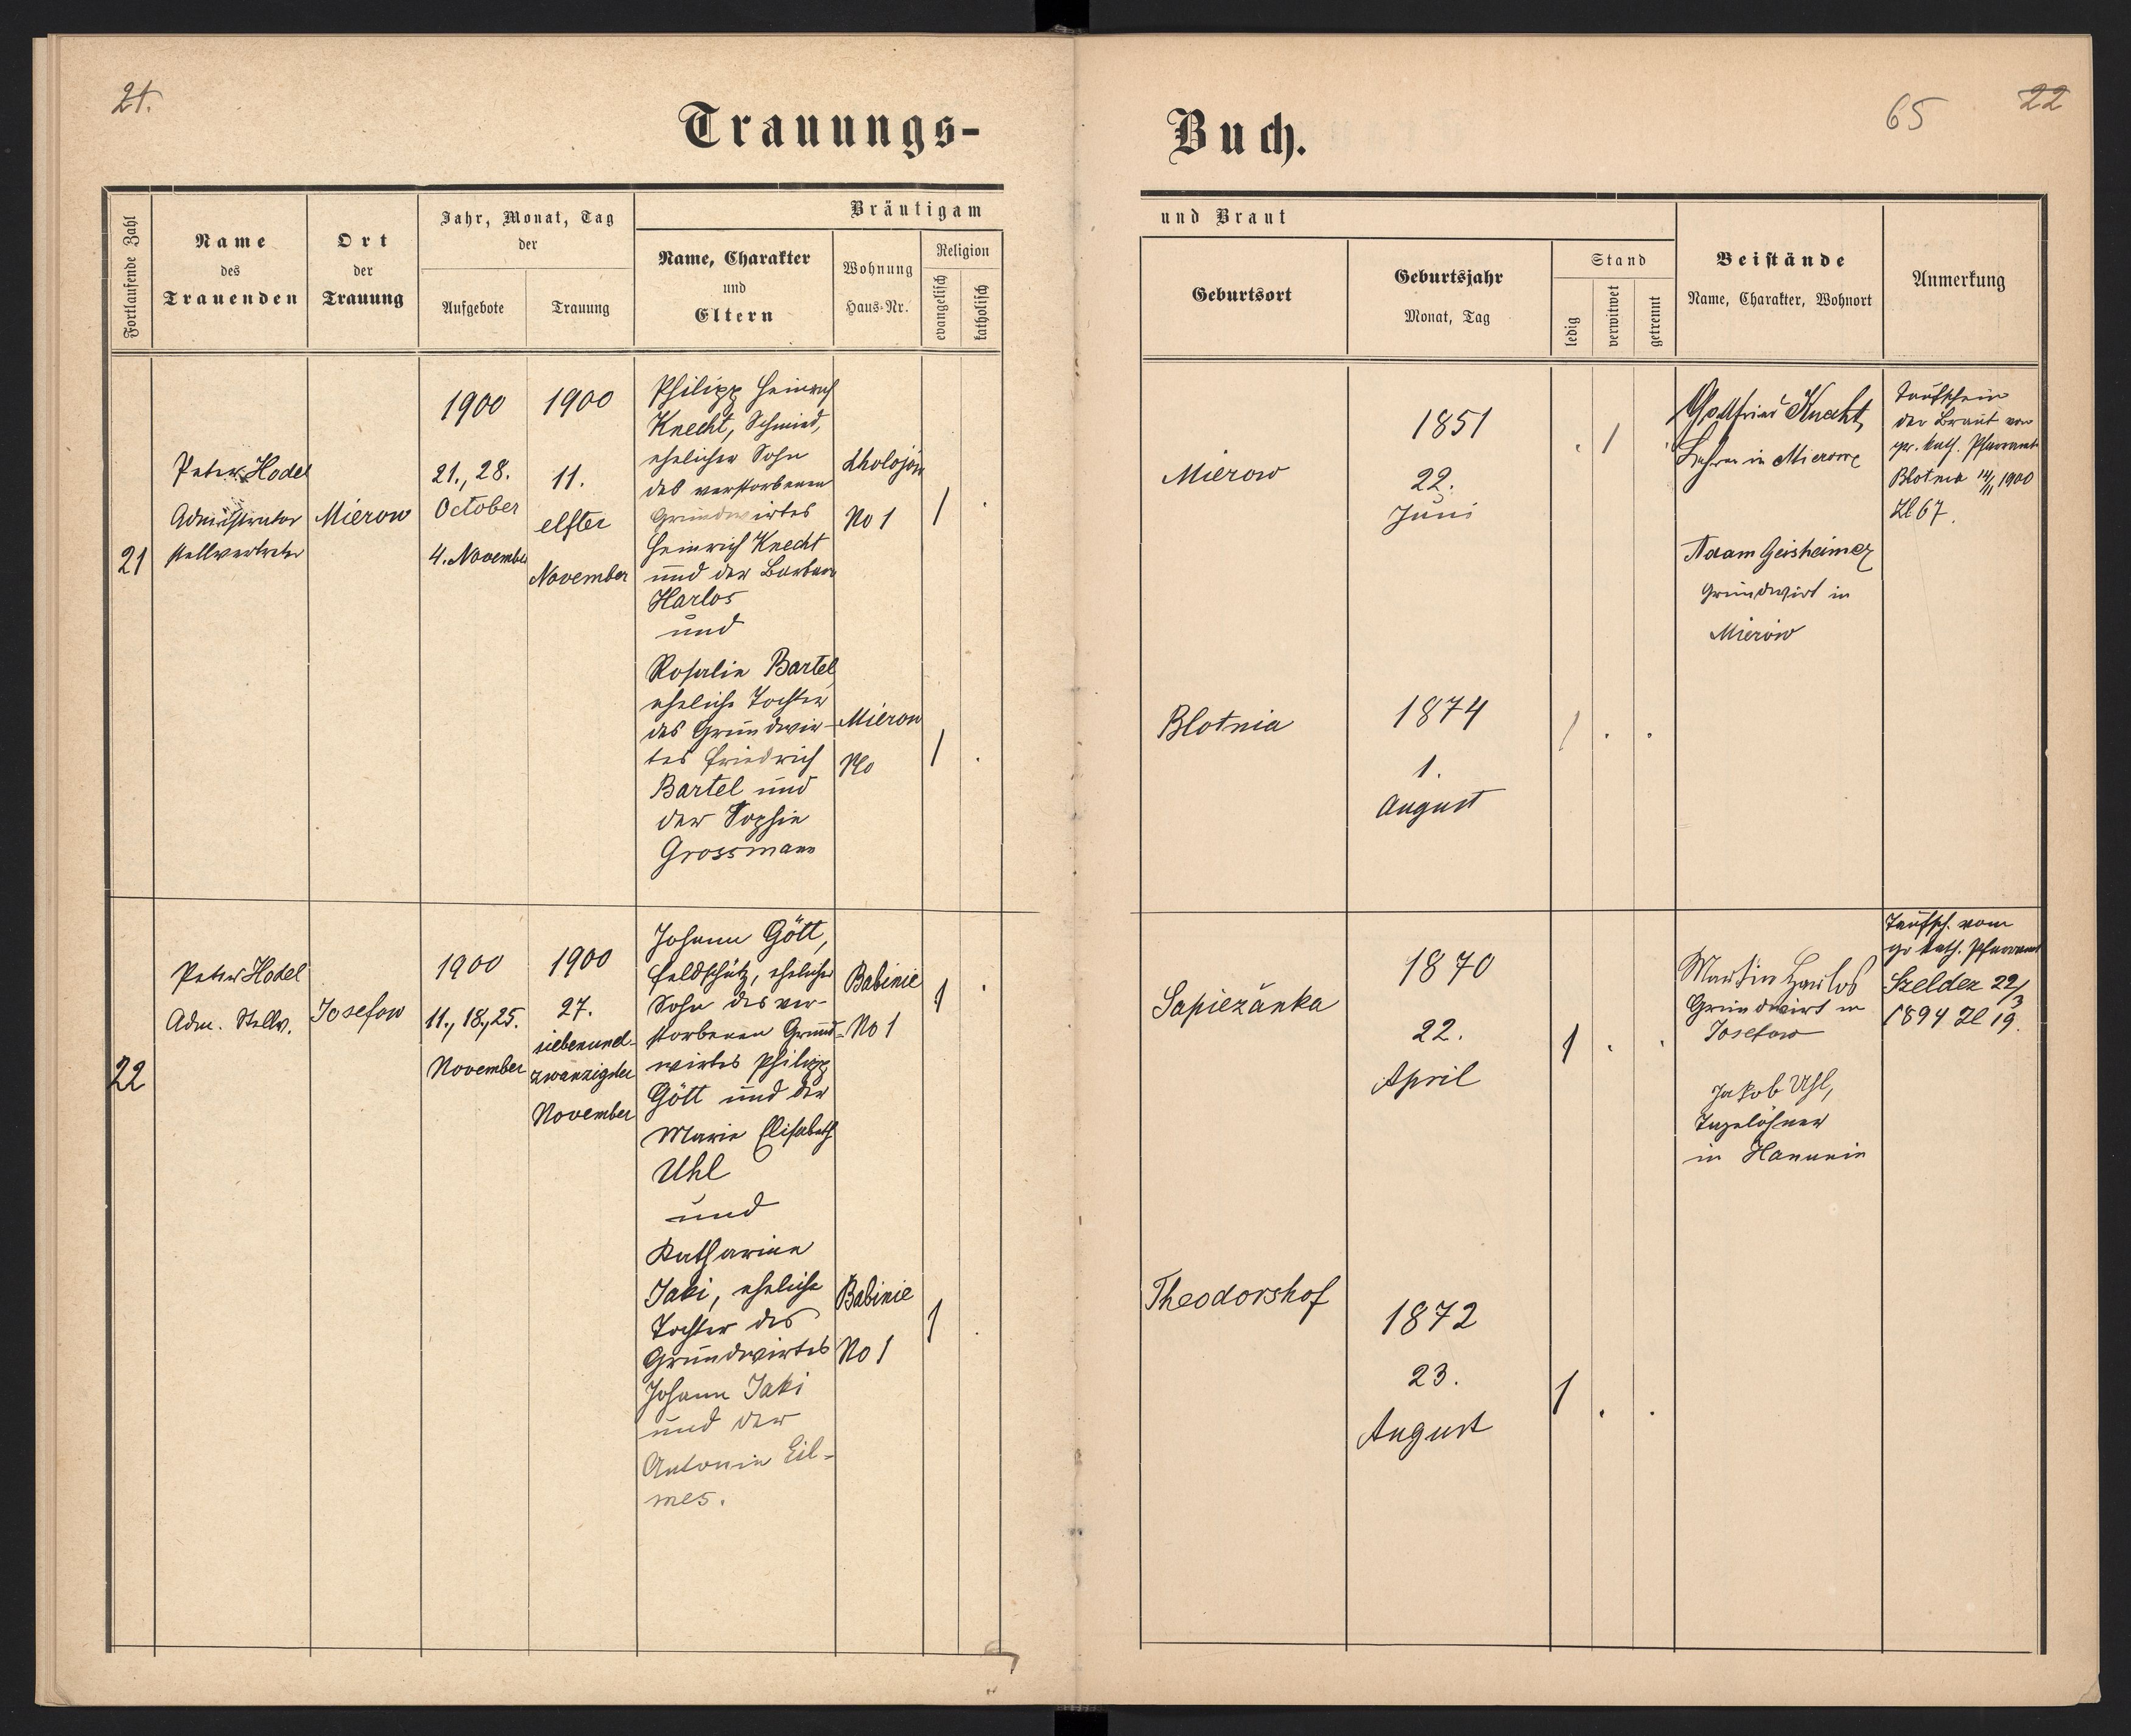 21.
Trauungs-
Buch.
65
22
Fortlaufende Zahl
Name
des
Trauenden
Ort
der
Trauung
Jahr, Monat, Tag
der
Aufgebote
Trauung
Bräutigam
Name, Charakter
und
Eltern
Wohnung
Haus-Nr.
Religion
evangelisch
katholisch
und Braut
Geburtsort
Geburtsjahr
Monat, Tag
Stand
ledig
verwitwet
getrennt
Beistände
Name, Charakter, Wohnort
Anmerkung
21
Peter Hodel
Administrator
stellvertreter
Mierow
1900
21., 28.
October
4. November
1900
11.
elfter
November
Philipp Heinrich
Knecht, Schmied,
ehelicher Sohn
des verstorbenen
Grundwirtes
Heinrich Knecht
und der Barbara
Harlos
und
Rosalie Bartel,
eheliche Tochter
des Grundwir-
tes Friedrich
Bartel und
der Sophie
Grossmann
No 1
Mierow
No
1
.
1
.
Mierow
1851
22.
Juni
. 1 .
Blotnia
1874
1.
August
1 . .
Gottfried Knecht,
Lehrer in Mierow
Adam Geisheimer
Grundwirt in
Mierów
Taufschein
der Braut vom
gr. kath. Pfarramt
Blotnia 14/11 1900
Zl 67.
22
Peter Hodel
Adm. Stellv.
Josefow
1900
11., 18., 25.
November
1900
27.
siebenund-
zwanzigster
November
Johann Gött,
Feldschütz, ehelicher
Sohn des ver-
storbenen Grund-
wirtes Philipp
Gött und der
Marie Elisabeth
Uhl
und
Katharina
Jaki, eheliche
Tochter des
Grundwirtes
Johann Jaki
und der
Antonie Eil-
mes.
Babinie
No 1
Babinie
No 1
1
.
1
.
Sapieżanka
1870
22.
April
1 . .
Theodorshof
1872
23.
August
1 . .
Martin Harlos
Grundwirt in
Josefow
Jakob Uhl,
Tagelöhner
in Hanunin
Taufsch. vom
gr kath. Pfarramt
22/3
1894 Zl 19.